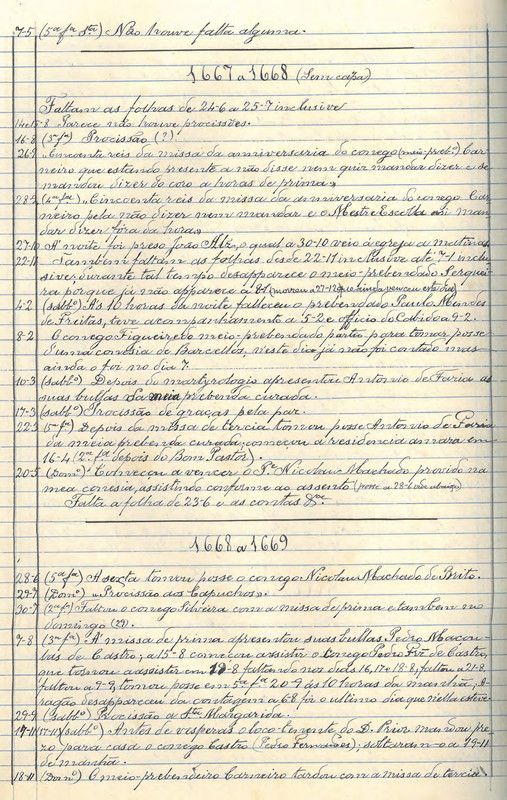 7-5 (5ª fª Stª) Não houve falta alguma.
1667 a 1668 (Sem capa)
Faltam as folhas de 24-6 a 25-7 inclusive
14 e 15-8 Parece não houve procissões.
16-8 (5ª fª) Procissão (?)
26-9 "Cincoenta reis da missa da anniversaria do conego (meio-prebº) Car-
neiro que estando presente a não disse nem quiz mandar dizer e se
mandou dizer do coro a horas de prima"
28-9 (4ª fª) "Cincoenta reis da missa da anniversaria do conego Car
neiro pela não dizer nem mandar e o Mestre Escolla a man
dar dizer fóra da hora"
27-10 A' noite foi preso João Alz, o qual a 30-10 veio á egreja a matinas.
22-11 Tambem faltam as folhas desde 22-11 inclusive até 7-1 inclu
sive; durante tal tempo desapparece o meio-prebendado Serquei-
ra porque já não apparece a 8-1 (morreu a 27-12 que ainda venceu este dia)
4-2 (sabbº) A's 10 horas da noite falleceu o prebendado Paulo Mendes
de Freitas, teve acompanhamento a 5-2 e officio do Cabido a 9-2.
8-2 O conego Figueiredo meio-prebendado partio para tomar posse
d'uma conesia de Barcellos, neste dia já não foi contado mas
ainda o foi no dia 7.
10-3 (sabbº) Depois do martyrologio apresentou Antonio de Faria as
suas bullas da meia prebenda curada.
17-3 (sabbº) Procissão de graças pela paz.
22-3 (5ª fª) Depois da missa de tercia tomou posse Antonio de Faria
da meia prebenda curada; começou a residencia amara em
16-4 (2ª fª depois do Bom Pastor).
20-5 (Domº) Começou a vencer o Pe Nicolau Machado provido na
mea conesia, assistindo conforme ao assento (posse a 28-6 vide abaixo)
Falta a folha de 23-6 e as contas &ª
1668 a 1669
28-6 (5ª fª) A sexta tomou posse o conego Nicolau Machado de Brito.
29-7 (Domº) "Procissão aos Capuchos".
30-7 (2ª fª) Faltou o conego Silveira com a missa de prima e tambem no
domingo (29).
7-8 (3ª fª) A' missa de prima apresentou suas bullas Pedro
de Castro; a 15-8 começou assistir o Conego Pedro Frz de Castro,
que tornou a assistir em 19-8 faltando nos dias 16, 17 e 18-8, faltou a 21-8,
faltou a 9-9, tomou posse em 5ª fª 20-9 ás 10 horas da manhã; A-
ragão desappareceu da contagem a 6-8 foi o ultimo dia que n'ella esteve
29-9 (sabbº) Procissão a Stª Margarida.
17-11 (sabbº) Antes de vesporas o loco-tenente do D. Prior mandou pre
zo para casa o conego Castro (Pedro Fernandes); soltaram-o a 19-11
de manhã.
18-11 (Domº) O meio-prebendeiro Carneiro tardou com a missa de tercia.